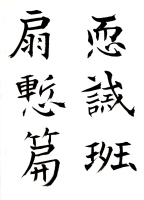 恧誡班
扇慙篇